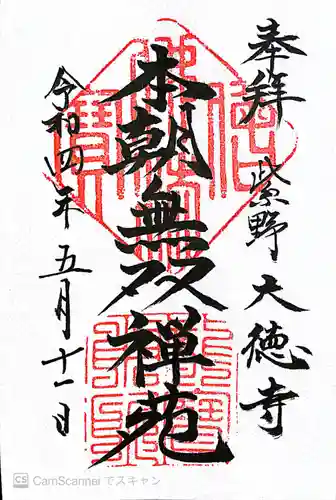 奉拝 紫野 大徳寺
本朝無双禅苑
令和四年 五月十一日
CS CamScanner でスキャン